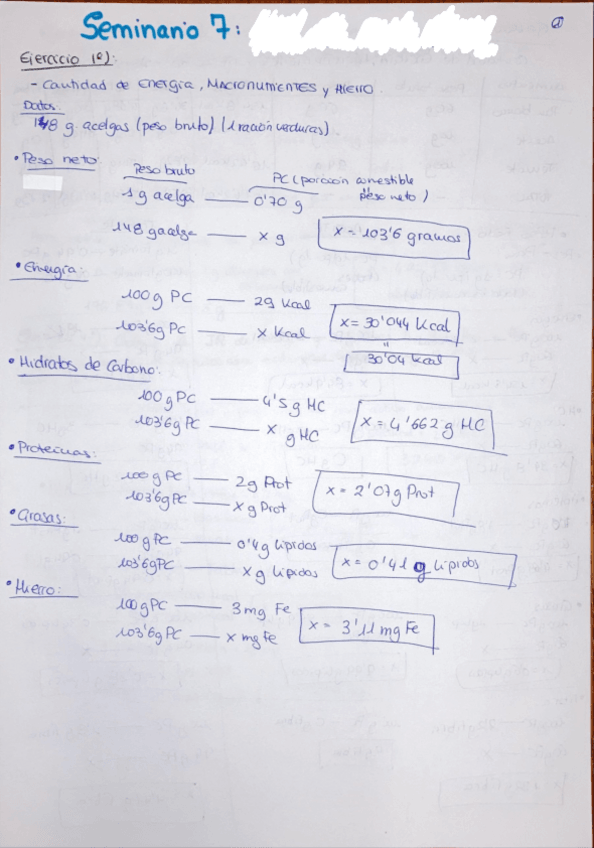 Seminario 7:
1
Ejercicio 1º):
- Cantidad de energía, Macronutrientes y Hierro.
Datos:
148 g. acelgas (peso bruto) (1 ración verduras)
• Peso neto:
Peso bruto
PC (porción comestible
1 g acelga —— 0'70 g
peso neto)
148 g acelga —— x g
x = 103'6 gramos
• Energía:
100 g PC —— 29 Kcal
103'6g PC —— x Kcal
x = 30'044 Kcal
=
30'04 Kcal
• Hidratos de Carbono:
100 g PC —— 4'5 g HC
103'6g PC —— x g HC
x = 4'662 g HC
• Proteínas:
100 g PC —— 2g Prot
103'6g PC —— x g Prot
x = 2'07g Prot
• Grasas:
100 g PC —— 0'4g lípidos
103'6g PC —— x g lípidos
x = 0'41 g lípidos
• Hierro:
100 g PC —— 3 mg Fe
103'6g PC —— x mg Fe
x = 3'11 mg Fe